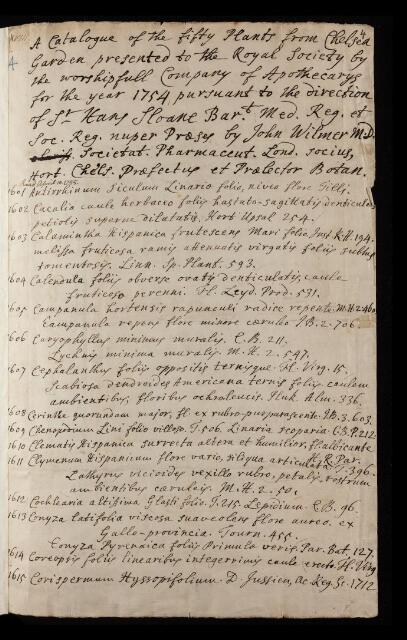 A Catalogue of the fifty Plants from Chelsea
Garden presented to the Royal Society by
the worshipfull Company of Apothecarys
for the year 1754 pursuant to the direction
of Sr Hans Sloane Bar.t Med. Reg. et
Soc. Reg. nuper Præses by John Wilmer M.D.
Societat. Pharmaceut. Lond. socius,
Hort. Chels. Præfectus et Prælector Botan.
1601 Antirrhinum Siculum Linariæ folio, niveo flore Tilli.
1602 Cacalia caule herbaceo foliis hastato-sagittatis denticulatis
petiolis superne dilatatis. Hort Upsal 254.
1603 Calamintha Hispanica frutescens Mari folio Inst. R.H. 194.
melissa fruticosa ramis attenuatis virgatis foliis subtus
tomentosis. Linn. Sp. Plant. 593.
1604 Calendula foliis obverse ovatis denticulatis, caule
fruticoso perenni. Fl. Leyd. Prod. 531.
1605 Campanula hortensis rapunculi radice repente. M.H. 2.460
Campanula repens flore minore cæruleo J.B. 2. 706.
1606 Caryophyllus minimus muralis. C.B. 211.
Lychnis minima muralis. M.H. 2. 547.
1607 Cephalanthus foliis oppositis ternisque. Fl. Virg. 15.
Scabiosa dendroides Americana ternis foliis caulem
ambientibus, floribus ochroleucis. Pluk. Alm. 336.
1608 Cerinthe quorundam major, fl ex rubro-purpurascente. J.B. 3. 603.
1609 Chenopodium Lini folio villoso. T. 506. Linaria scoparia C.B.P. 212
1610 Clematis Hispanica surrecta altera et humilior, fl. albicante
H.R. Par.
1611 Clymenum Hispanicum flore vario, siliqua articulata T. 396.
Lathyrus vicioides vexillo rubro, petalis rostrum
ambientibus cæruleis. M.H. 2. 50.
1612 Cochlearia altissima Glasti folio. T. 215. Lepidium. C.B. 96.
1613 Conyza latifolia viscosa suaveolens flore aureo. ex
Gallo-provincia. Tourn. 455.
Conyza Pyrenaica foliis Primulæ veris. Par. Bat. 127.
1614 Coreopsis foliis linearibus integerrimis caule erecto. H. Virg
1615 Corispermum Hyssopifolium. D Jussieu, Ac. Reg. Sc. 1712